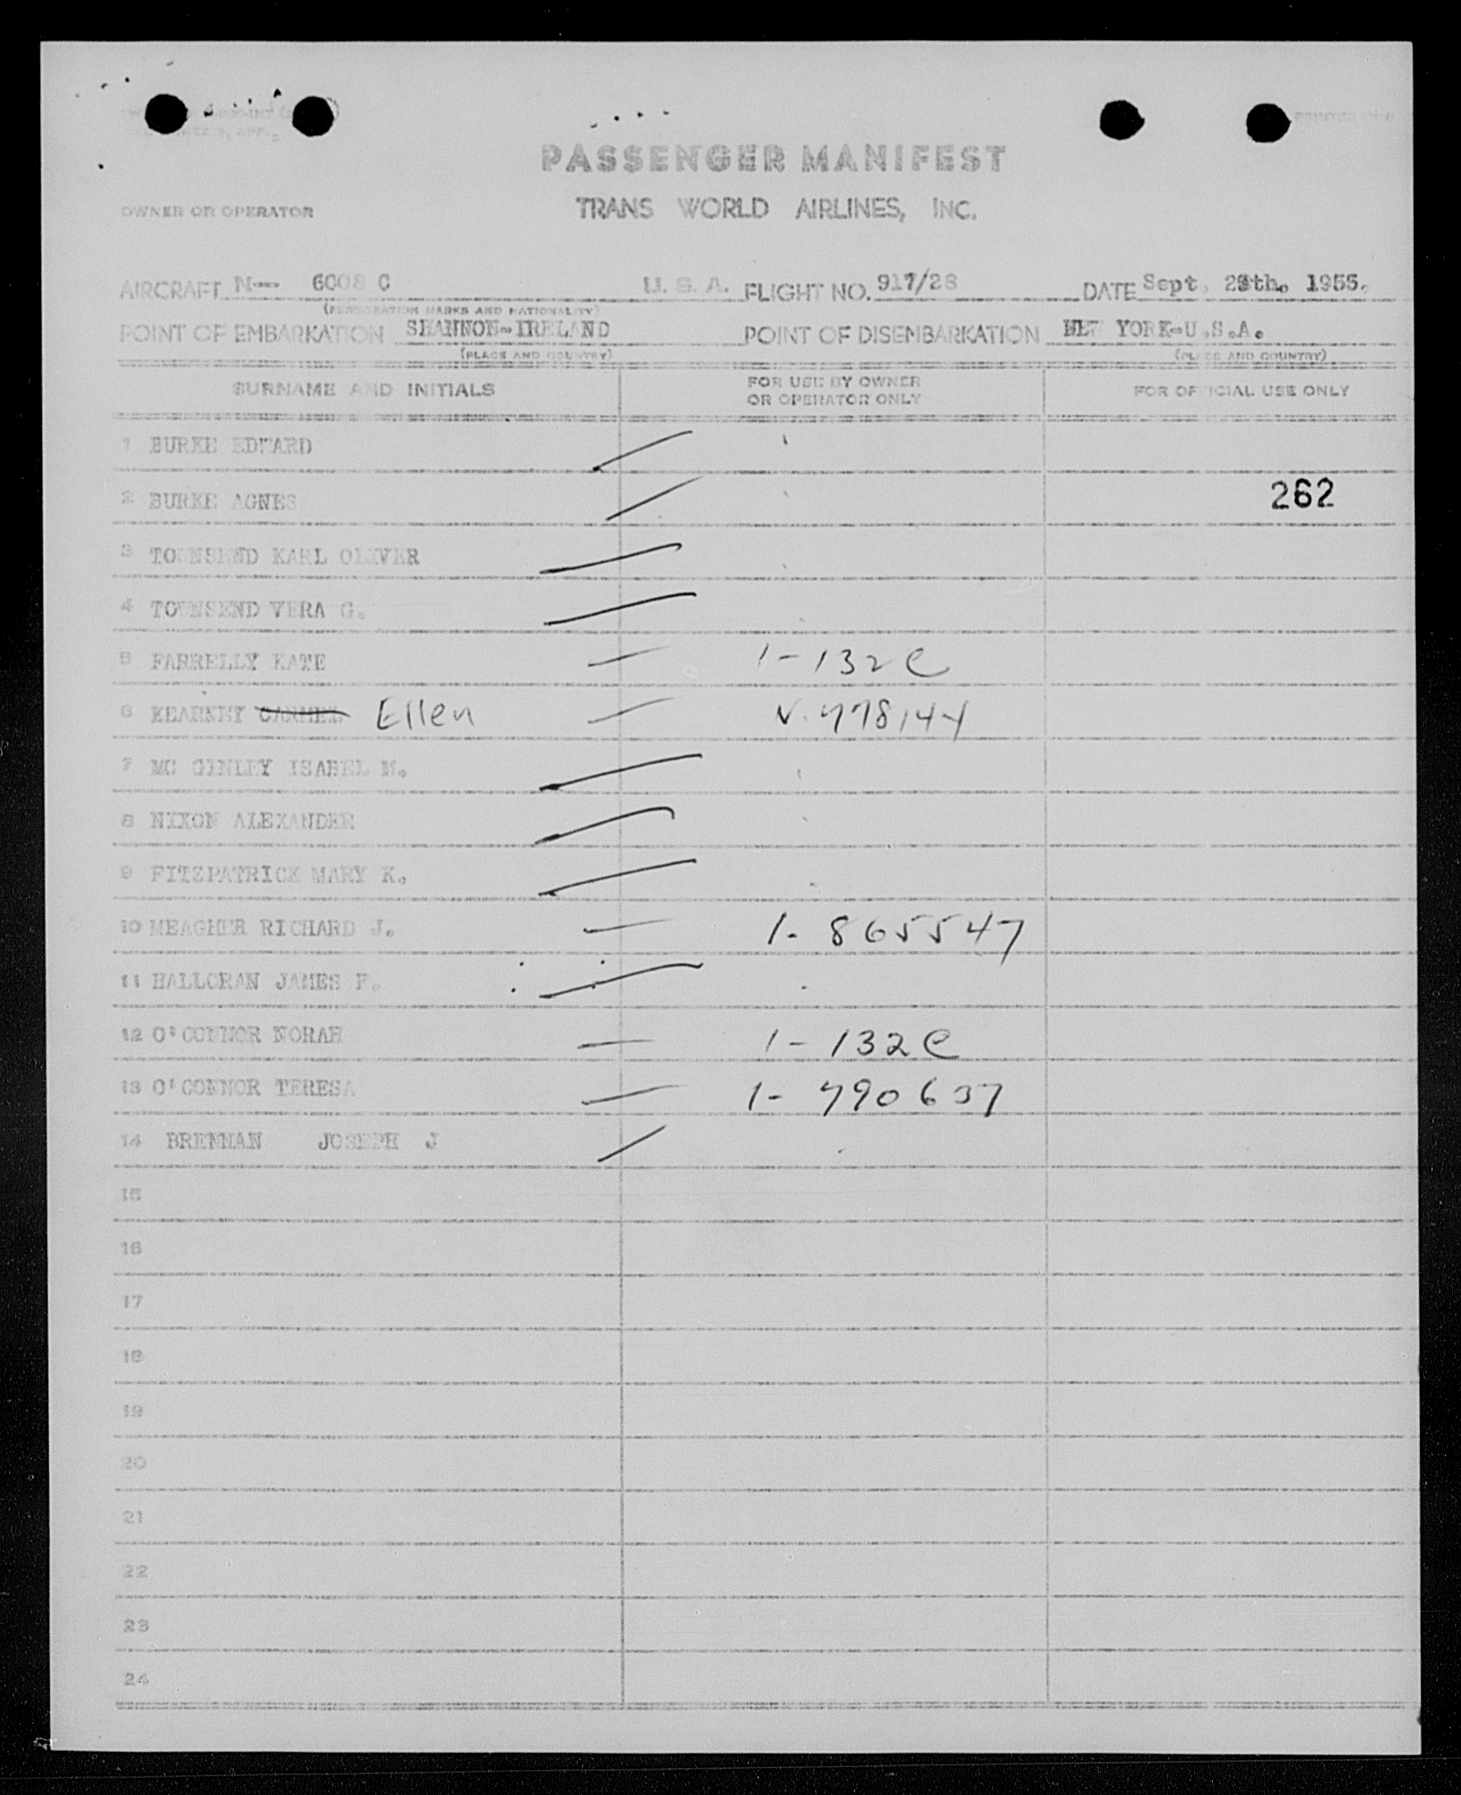 PASSENGER MANIFEST
OWNER OR OPERATOR TRANS WORLD AIRLINES, INC.
AIRCRAFT N-- 6008 C U.S.A. FLIGHT NO. 917/28 DATE Sept. 28th. 1955.
(REGISTRATION MARKS AND NATIONALITY)
POINT OF EMBARKATION SHANNON-IRELAND POINT OF DISEMBARKATION NEW YORK-U.S.A.
(PLACE AND COUNTRY) (PLACE AND COUNTRY)
SURNAME AND INITIALS FOR USE BY OWNER OR OPERATOR ONLY FOR OFFICIAL USE ONLY
1 BURKE EDWARD
2 BURKE AGNES 262
3 TOWNSEND KARL OLIVER
4 TOWNSEND VERA G.
5 FARRELLY KATE 1-132C
6 KEARNEY CARMEL Ellen V. 778144
7 MC GINLEY ISABEL M.
8 NIXON ALEXANDER
9 FITZPATRICK MARY K.
10 MEAGHER RICHARD J. 1-865547
11 HALLORAN JAMES F.
12 O'CONNOR NORAH 1-132C
13 O'CONNOR TERESA 1-790637
14 BRENNAN JOSEPH J
15
16
17
18
19
20
21
22
23
24